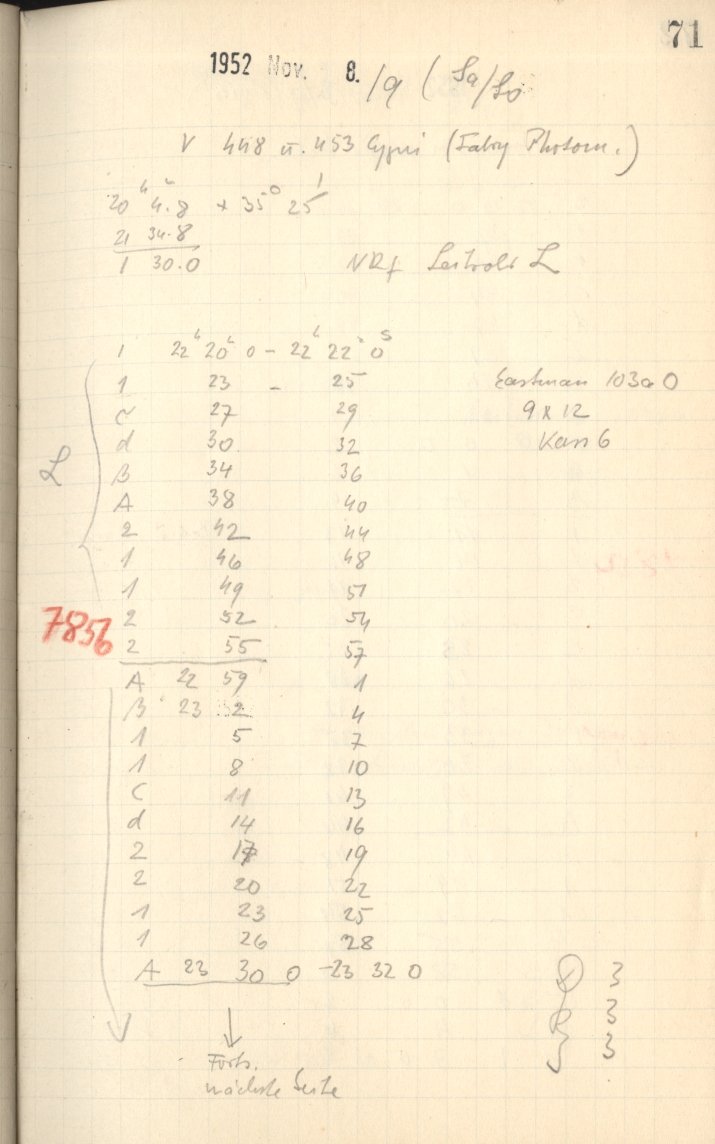 71
1952 Nov. 8./9 (Sa/So
V 448 u. 453 Cygni (Fabry Photom.)
20ʰ 4.8 + 35° 25'
21 34.8
1 30.0
NRf L
1 22ʰ 20ᵐ 0 - 22ʰ 22ᵐ 0ˢ
1 23 - 25
Eastman 103a O
C 27 29
9 x 12
d 30 32
Kass 6
L
B 34 36
A 38 40
2 42 44
1 46 48
1 49 51
7856
2 52 54
2 55 57
A 22 59 1
B 23 2 4
1 5 7
1 8 10
C 11 13
d 14 16
2 17 19
2 20 22
1 23 25
1 26 28
A 23 30 0 - 23 32 0
D 3
R 3
S 3
Forts.
nächste Seite